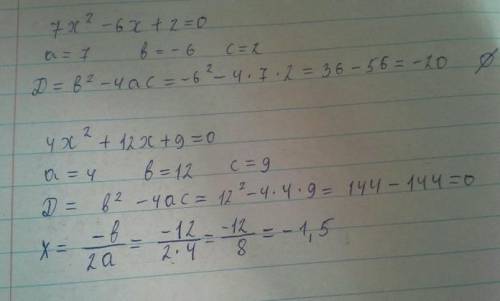 7x² - 6x + 2 = 0
a = 7 b = -6 c = 2
D = b² - 4ac = -6² - 4·7·2 = 36 - 56 = -20 ∅
4x² + 12x + 9 = 0
a = 4 b = 12 c = 9
D = b² - 4ac = 12² - 4·4·9 = 144 - 144 = 0
x = -b/2a = -12/2·4 = -12/8 = -1,5